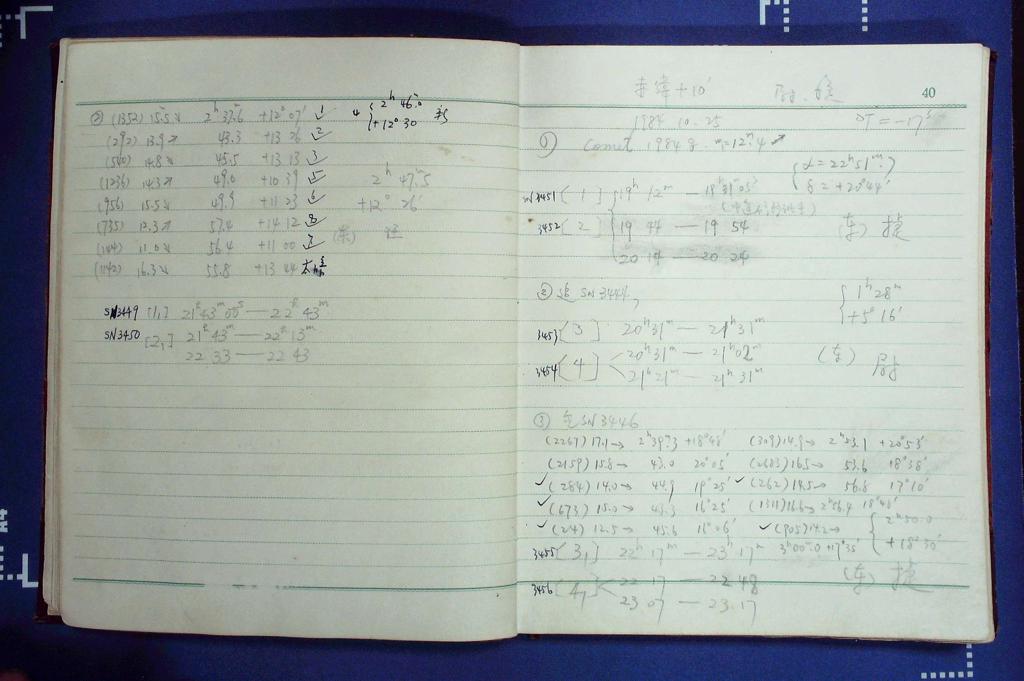 ② (1352) 15.5↘ 2ʰ 37.ᵐ6 +12°07′ 1✓
4 { 2ʰ 46.ᵐ0
+12°30
(292) 13.9↗ 43.3 +13 26 2✓
(540) 14.8↘ 45.5 +13 13 3✓
(1236) 14.3↗ 49.0 +10 39 5✓
2ʰ 47.ᵐ5
(956) 15.5↘ 49.9 +11 23 6✓
+12° 26′
(735) 12.3↗ 57.4 +14 12 8✓
(144) 11.0↘ 56.4 +11 00 7✓
(东)
(1142) 16.3↘ 55.8 +13 44
SN3449 [1₁] 21ʰ43ᵐ00ˢ — 22ʰ 43ᵐ
SN3450 [2₁] 21ʰ43ᵐ — 22ʰ13ᵐ
22 33 — 22 43
赤纬+10′
40
1984 10.25
ΔT = −17ˢ
① Comet 1984 g. m=12.ᵐ4
{ α=22ʰ51ᵐ.7
δ=+20°44′
SN3451 [1] 19ʰ 12ᵐ —
3452 [2] 19 44 — 19 54
(东) 捷
20 14 — 20 24
② 追 SN3444,
{ 1ʰ28ᵐ
+5° 16′
3453 [3] 20ʰ31ᵐ — 21ʰ31ᵐ
3454 [4] 20ʰ31ᵐ — 21ʰ02ᵐ
(东)
21ʰ21ᵐ — 21ʰ31ᵐ
③ SN3446
(2267) 17.1→ 2ʰ39.ᵐ3 +18°48′ (309) 14.9→ 2ʰ53.1 +20°53′
(2159) 15.8→ 43.0 20°05′ (2683) 16.5→ 53.6 18°38′
✓(284) 14.0→ 44.9 19°25′ ✓(262) 14.5→ 56.8 17°10′
✓(673) 15.0→ 43.3 16°25′ (1311) 16.6→ 2ʰ56.4 18°48′
✓(24) 12.5→ 45.6 16°06′ ✓(905) 14.2→
{ 2ʰ50.ᵐ0
+18°30′
3455 [3₁] 22ʰ17ᵐ — 23ʰ17ᵐ 3ʰ00.ᵐ0 +17°35′
3456 [4₁] 22 17 — 22 48
(东) 捷
23 07 — 23.17